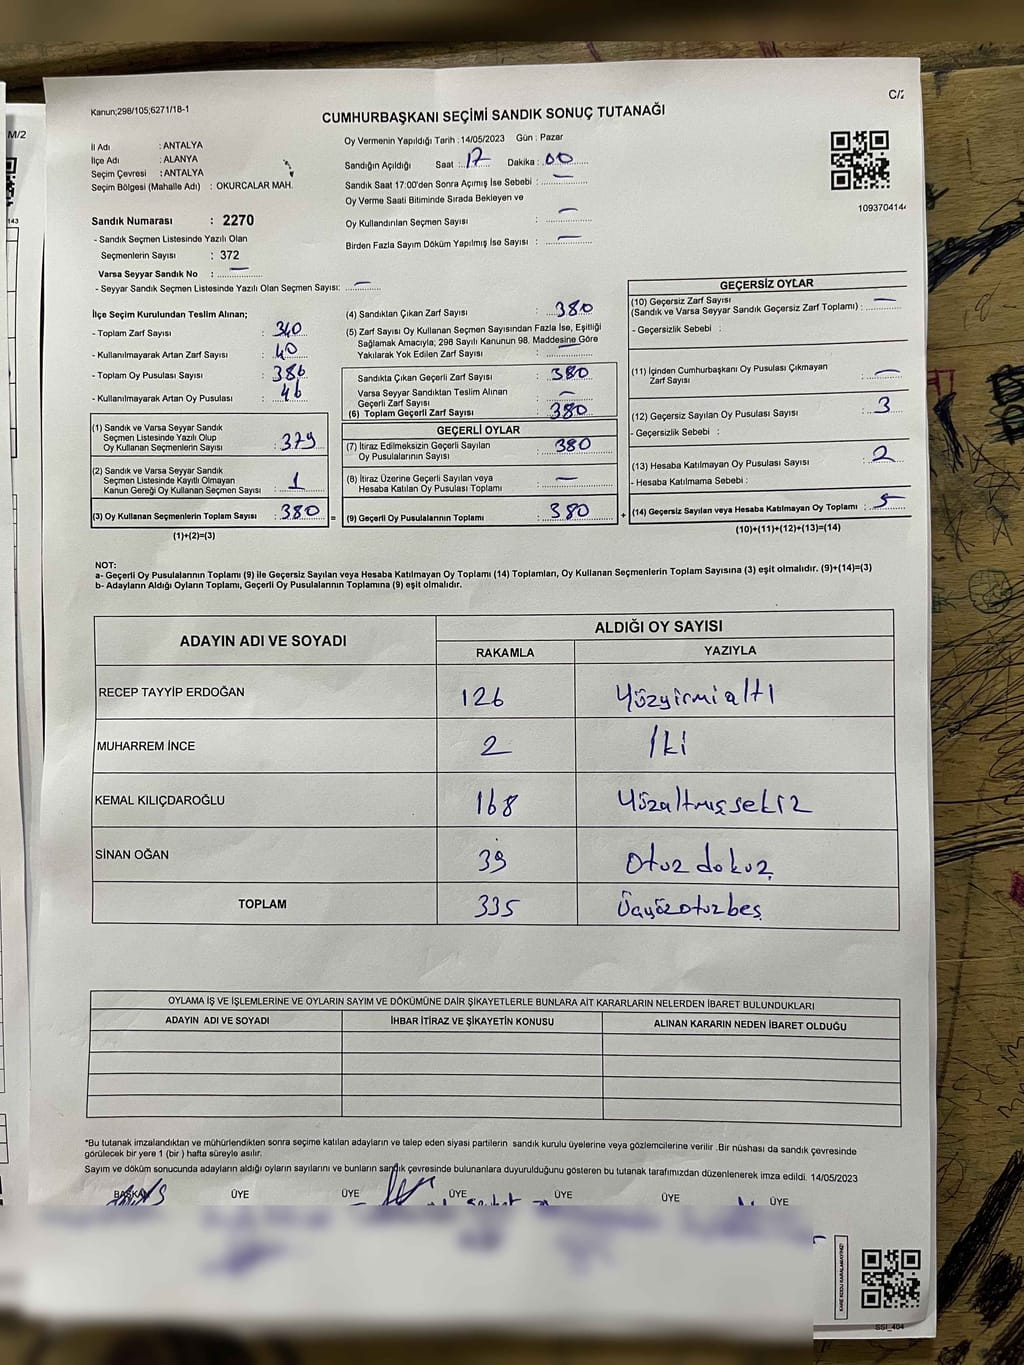 M/2
143
Kanun;298/105;6271/18-1
C/2
CUMHURBAŞKANI SEÇİMİ SANDIK SONUÇ TUTANAĞI
İl Adı : ANTALYA
İlçe Adı : ALANYA
Seçim Çevresi : ANTALYA
Seçim Bölgesi (Mahalle Adı) : OKURCALAR MAH.
Oy Vermenin Yapıldığı Tarih : 14/05/2023 Gün : Pazar
Sandığın Açıldığı Saat : 17 Dakika : 00
Sandık Saat 17:00'den Sonra Açımış İse Sebebi : —
Oy Verme Saati Bitiminde Sırada Bekleyen ve
Oy Kullandırılan Seçmen Sayısı : —
Birden Fazla Sayım Döküm Yapılmış İse Sayısı : —
109370414
Sandık Numarası : 2270
- Sandık Seçmen Listesinde Yazılı Olan
Seçmenlerin Sayısı : 372
Varsa Seyyar Sandık No : —
- Seyyar Sandık Seçmen Listesinde Yazılı Olan Seçmen Sayısı: —
İlçe Seçim Kurulundan Teslim Alınan;
- Toplam Zarf Sayısı : 340
- Kullanılmayarak Artan Zarf Sayısı : 40
- Toplam Oy Pusulası Sayısı : 386
- Kullanılmayarak Artan Oy Pusulası : 46
(1) Sandık ve Varsa Seyyar Sandık
Seçmen Listesinde Yazılı Olup
Oy Kullanan Seçmenlerin Sayısı : 379
(2) Sandık ve Varsa Seyyar Sandık
Seçmen Listesinde Kayıtlı Olmayan
Kanun Gereği Oy Kullanan Seçmen Sayısı : 1
(3) Oy Kullanan Seçmenlerin Toplam Sayısı : 380
(1)+(2)=(3)
(4) Sandıktan Çıkan Zarf Sayısı : 380
(5) Zarf Sayısı Oy Kullanan Seçmen Sayısından Fazla İse, Eşitliği
Sağlamak Amacıyla; 298 Sayılı Kanunun 98. Maddesine Göre
Yakılarak Yok Edilen Zarf Sayısı : —
Sandıkta Çıkan Geçerli Zarf Sayısı : 380
Varsa Seyyar Sandıktan Teslim Alınan
Geçerli Zarf Sayısı : —
(6) Toplam Geçerli Zarf Sayısı : 380
GEÇERLİ OYLAR
(7) İtiraz Edilmeksizin Geçerli Sayılan
Oy Pusulalarının Sayısı : 380
(8) İtiraz Üzerine Geçerli Sayılan veya
Hesaba Katılan Oy Pusulası Toplamı : —
=
(9) Geçerli Oy Pusulalarının Toplamı : 380
+
GEÇERSİZ OYLAR
(10) Geçersiz Zarf Sayısı
(Sandık ve Varsa Seyyar Sandık Geçersiz Zarf Toplamı) : —
- Geçersizlik Sebebi :
(11) İçinden Cumhurbaşkanı Oy Pusulası Çıkmayan
Zarf Sayısı : —
(12) Geçersiz Sayılan Oy Pusulası Sayısı : 3
- Geçersizlik Sebebi :
(13) Hesaba Katılmayan Oy Pusulası Sayısı : 2
- Hesaba Katılmama Sebebi :
(14) Geçersiz Sayılan veya Hesaba Katılmayan Oy Toplamı : 5
(10)+(11)+(12)+(13)=(14)
NOT:
a- Geçerli Oy Pusulalarının Toplamı (9) ile Geçersiz Sayılan veya Hesaba Katılmayan Oy Toplamı (14) Toplamları, Oy Kullanan Seçmenlerin Toplam Sayısına (3) eşit olmalıdır. (9)+(14)=(3)
b- Adayların Aldığı Oyların Toplamı, Geçerli Oy Pusulalarının Toplamına (9) eşit olmalıdır.
ADAYIN ADI VE SOYADI
ALDIĞI OY SAYISI
RAKAMLA YAZIYLA
RECEP TAYYİP ERDOĞAN 126 Yüzyirmialtı
MUHARREM İNCE 2 İki
KEMAL KILIÇDAROĞLU 168 Yüzaltmışsekiz
SİNAN OĞAN 39 Otuz dokuz
TOPLAM 335 Üçyüzotuzbeş
OYLAMA İŞ VE İŞLEMLERİNE VE OYLARIN SAYIM VE DÖKÜMÜNE DAİR ŞİKAYETLERLE BUNLARA AİT KARARLARIN NELERDEN İBARET BULUNDUKLARI
ADAYIN ADI VE SOYADI İHBAR İTİRAZ VE ŞİKAYETİN KONUSU ALINAN KARARIN NEDEN İBARET OLDUĞU
*Bu tutanak imzalandıktan ve mühürlendikten sonra seçime katılan adayların ve talep eden siyasi partilerin sandık kurulu üyelerine veya gözlemcilerine verilir .Bir nüshası da sandık çevresinde
görülecek bir yere 1 (bir ) hafta süreyle asılır.
Sayım ve döküm sonucunda adayların aldığı oyların sayılarını ve bunların sandık çevresinde bulunanlara duyurulduğunu gösteren bu tutanak tarafımızdan düzenlenerek imza edildi. 14/05/2023
BAŞKAN ÜYE ÜYE ÜYE ÜYE ÜYE ÜYE
KARE KODU KARALAMAYINIZ!
SSI_404